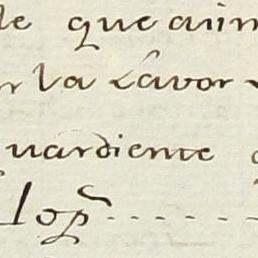 le que aun
r la Lavor
quardiente
lop